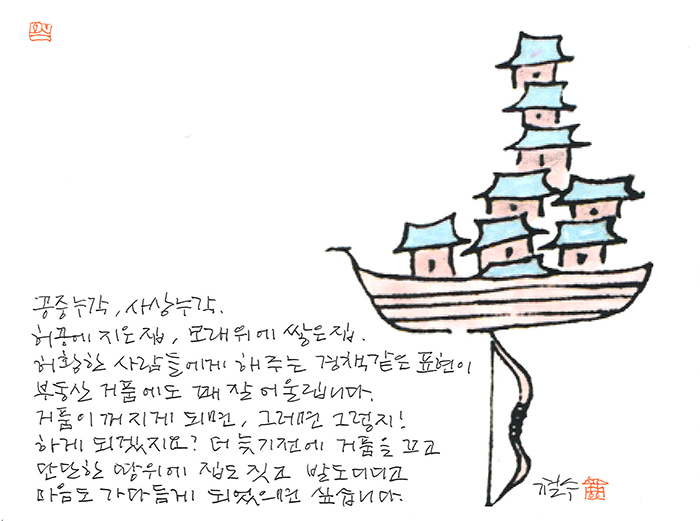 공중누각, 사상누각.
허공에 지은집, 모래위에 쌓은집.
허황한 사람들에게 해주는 경책같은 표현이
부동산 거품에도 꽤 잘 어울립니다.
거품이 꺼지게 되면, 그러면 그렇지!
하게 되겠지요? 더 늦기전에 거품을 끄고
단단한 땅위에 집도 짓고 발도 디디고
마음도 가다듬게 되었으면 싶습니다.
철수